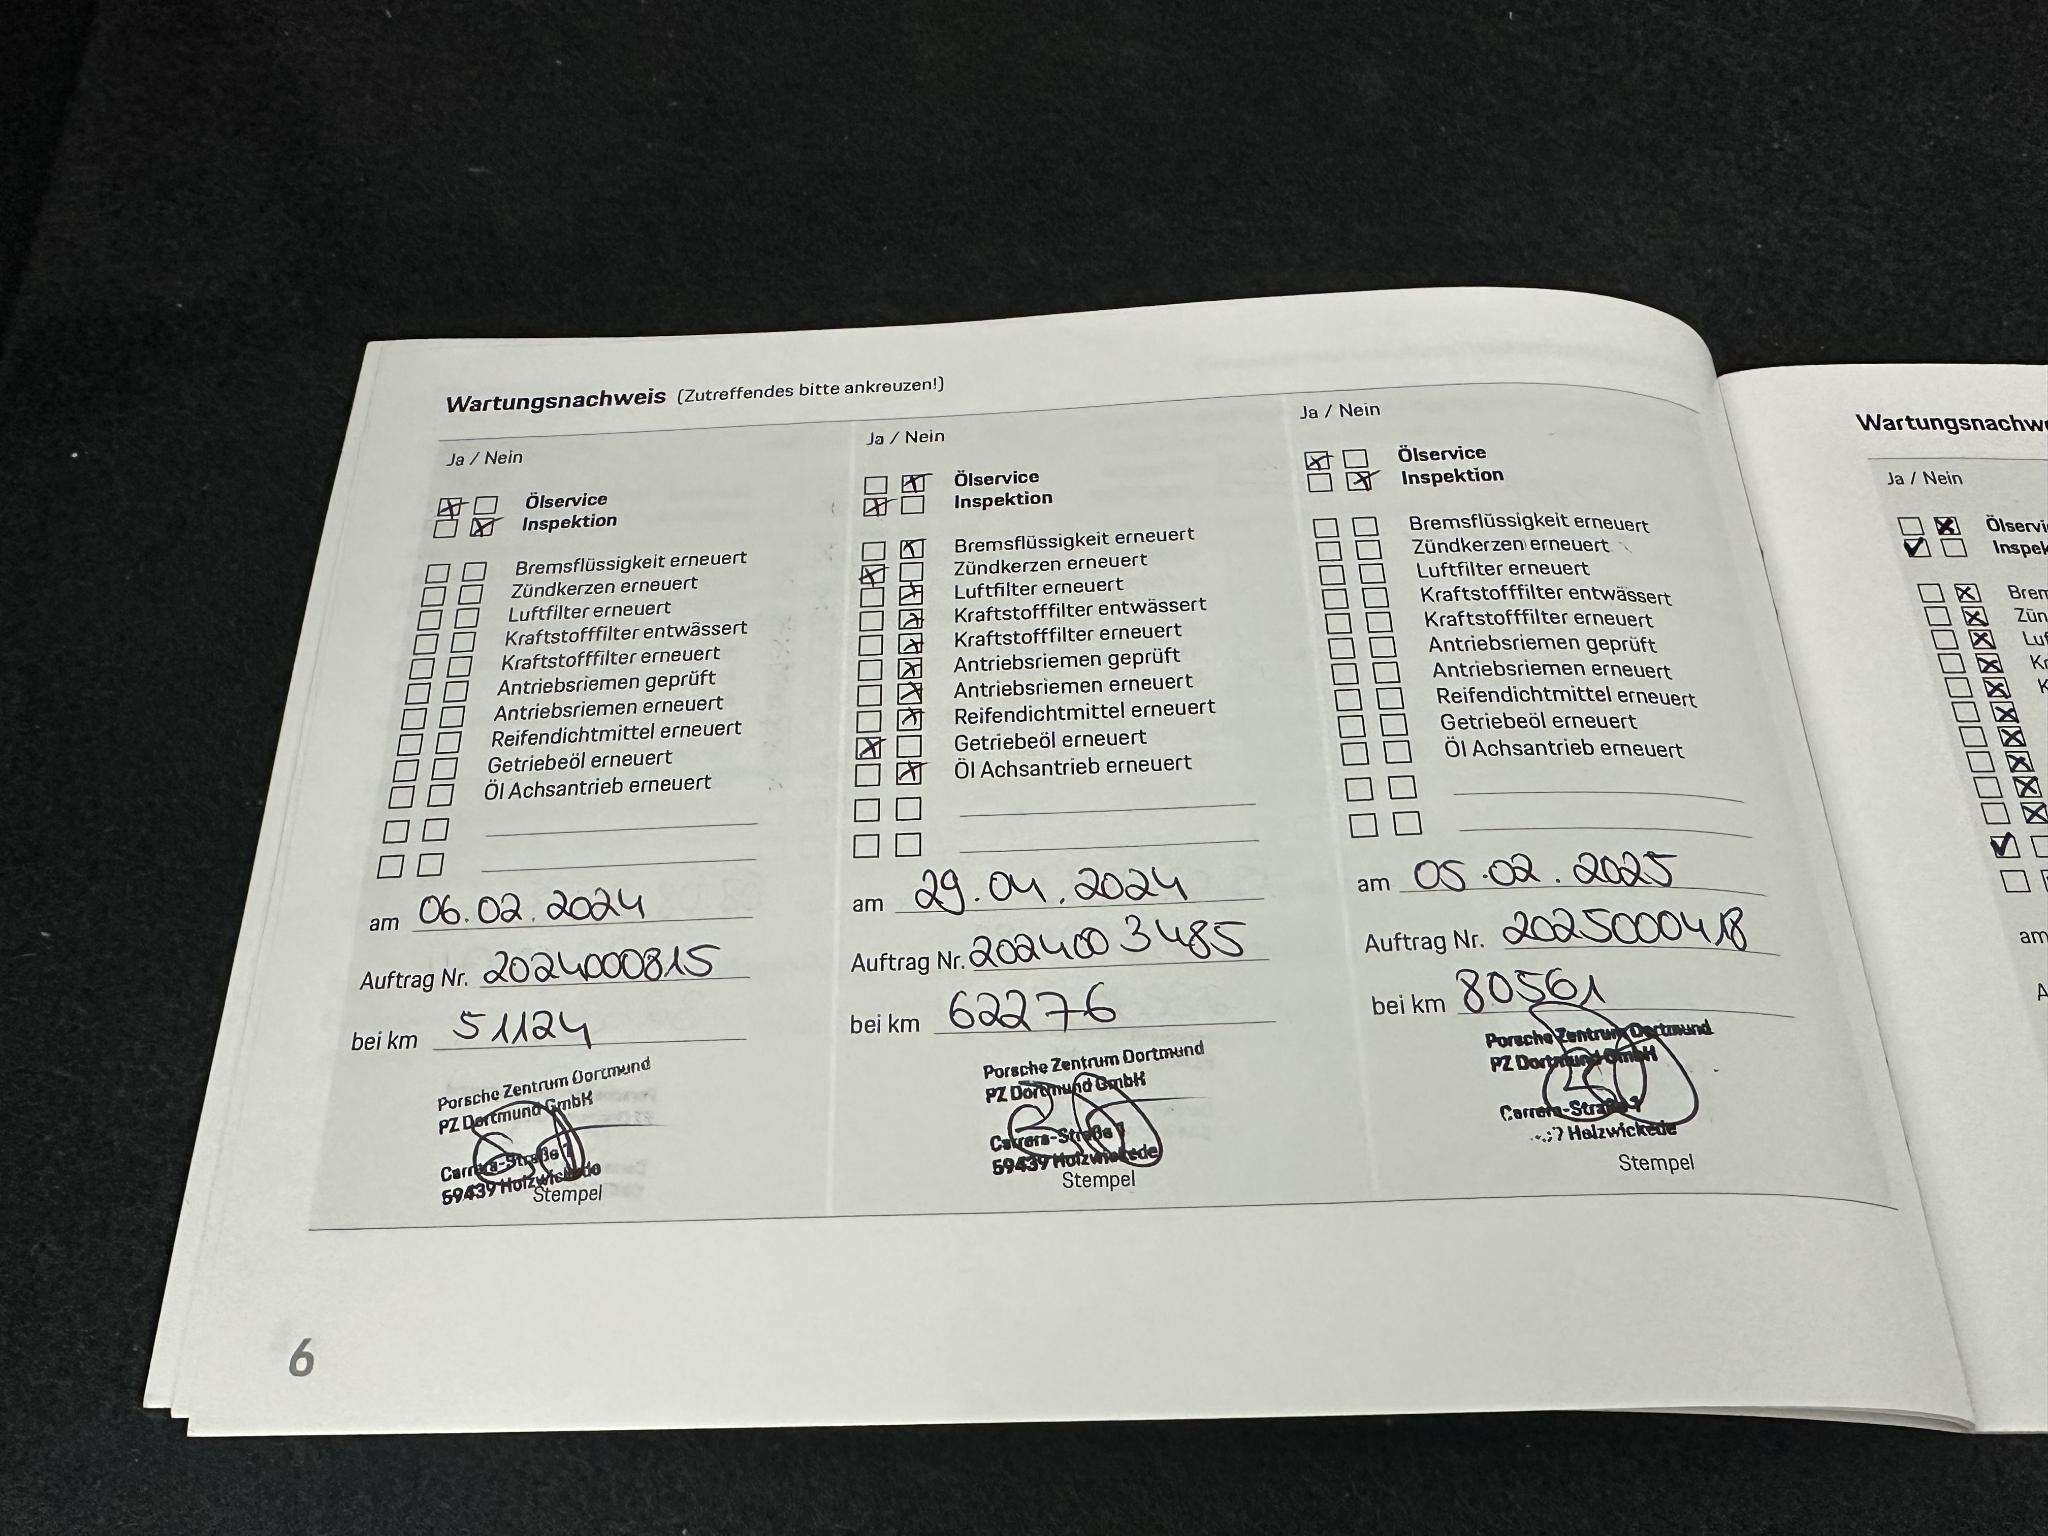 Wartungsnachweis (Zutreffendes bitte ankreuzen!)
Ja / Nein
Ölservice
Inspektion
Bremsflüssigkeit erneuert
Zündkerzen erneuert
Luftfilter erneuert
Kraftstofffilter entwässert
Kraftstofffilter erneuert
Antriebsriemen geprüft
Antriebsriemen erneuert
Reifendichtmittel erneuert
Getriebeöl erneuert
Öl Achsantrieb erneuert
am 06.02.2024
Auftrag Nr. 2024000815
bei km 51124
Porsche Zentrum Dortmund
PZ Dortmund GmbH
Carrera-Straße 1
59439 Holzwickede
Stempel
Ja / Nein
Ölservice
Inspektion
Bremsflüssigkeit erneuert
Zündkerzen erneuert
Luftfilter erneuert
Kraftstofffilter entwässert
Kraftstofffilter erneuert
Antriebsriemen geprüft
Antriebsriemen erneuert
Reifendichtmittel erneuert
Getriebeöl erneuert
Öl Achsantrieb erneuert
am 29.04.2024
Auftrag Nr. 2024003485
bei km 62276
Porsche Zentrum Dortmund
PZ Dortmund GmbH
Carrera-Straße 1
59439 Holzwickede
Stempel
Ja / Nein
Ölservice
Inspektion
Bremsflüssigkeit erneuert
Zündkerzen erneuert
Luftfilter erneuert
Kraftstofffilter entwässert
Kraftstofffilter erneuert
Antriebsriemen geprüft
Antriebsriemen erneuert
Reifendichtmittel erneuert
Getriebeöl erneuert
Öl Achsantrieb erneuert
am 05.02.2025
Auftrag Nr. 2025000418
bei km 80561
Porsche Zentrum Dortmund
PZ Dortmund GmbH
Carrera-Straße 1
Holzwickede
Stempel
6
Wartungsnachw
Ja / Nein
Ölservi
Inspek
Brem
Zün
Luf
Kr
K
am
A